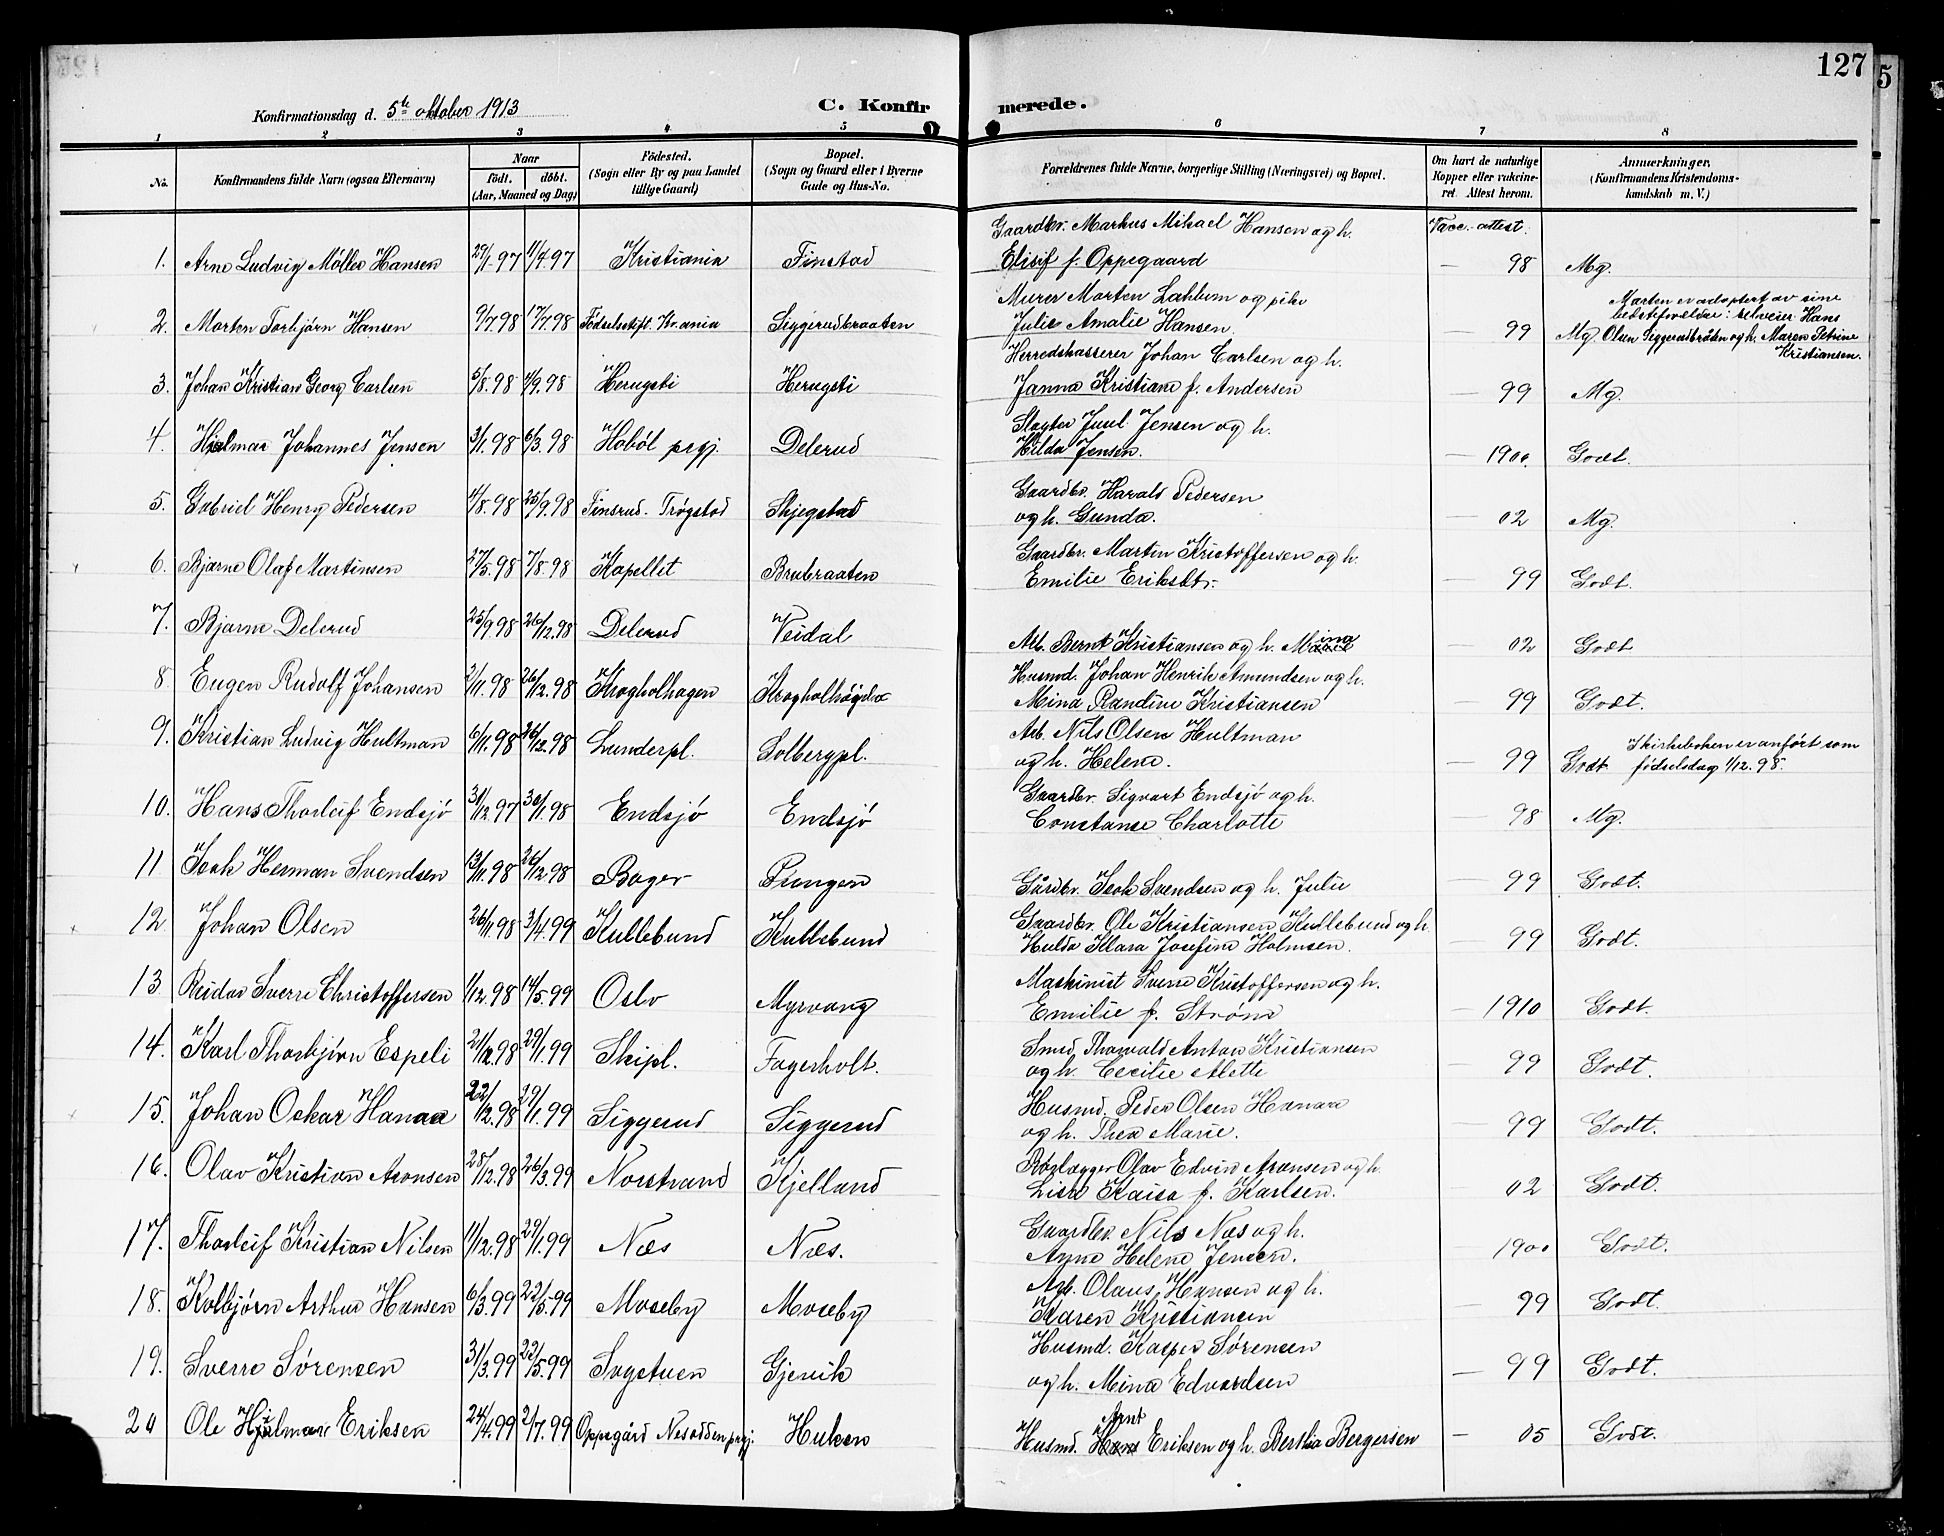 127
5
Konfirmationsdag d. 5te oktober 1913
C. Konfirmerede.
1 2 3 4 5 6 7 8
No. Konfirmandens fulde Navn (ogsaa Efternavn) Naar født. døbt. (Aar, Maaned og Dag) Fødested. (Sogn eller By og paa Landet tillige Gaard) Bopæl. (Sogn og Gaard eller i Byerne Gade og Hus-No. Forældrenes fulde Navne, borgerlige Stilling (Næringsvei) og Bopæl. Om havt de naturlige Kopper eller vakcineret. Attest herom. Anmærkninger. (Konfirmandens Kristendomskundskab m. V.)
Gaardbr. Markus Mikael Hansen og h. Vacc. attest.
1. Arne Ludvig Møller Hansen 29/1.97 11/4.97 Kristiania Finstad Elisif f. Oppegaard — 98 Mg.
Murer Morten Lahlum og pike
2. Morten Torbjörn Hansen 9/7.98 17/7.98 Födselsstift. Kr.ania Siggerudbraaten Julie Amalie Hansen. — 99 Mg. Morten er adoptert av sine bedsteforældre: selveier Hans Olsen Siggerudbråten og h. Maren Petrine Kristiansen.
Herredskasserer Johan Carlsen og h.
3. Johan Kristian Georg Carlsen 5/8.98 4/9.98 Herugsti Herugsti Janna Kristiane f. Andersen — 99 Mg.
Slagter Juul Jensen og h.
4. Hjalmar Johannes Jensen 3/1.98 6/3.98 Hoböl prgj. Delerud Hilda Jensen. — 1900 Godt.
Gaardbr. Harald Pedersen
5. Gabriel Henry Pedersen 11/8.98 25/9.98 Finsrud. Trögstad Skjegstad og h. Gunda. — 02 Mg.
Gaardbr. Martin Kristoffersen og h.
6. Bjarne Olaf Martinsen 27/5.98 7/8.98 Kapellet Brubraaten Emilie Eriksdtr. — 99 Godt.
7. Bjarne Delerud 25/9.98 26/12.98 Delerud Veidal Arb. Bernt Kristiansen og h. Mina — 02 Godt
Husmd. Johan Henrik Amundsen og h.
8. Eugen Rudolf Johansen 2/11.98 26/12.98 Krogholhagen Krogholhögda Mina Randine Kristiansen — 99 Godt.
Arb. Nils Olsen Hultman
9. Kristian Ludvig Hultman 6/11.98 26/12.98 Lunderpl. Solbergpl. og h. Helene. — 99 Godt. I kirkeboken er anfört som födselsdag 1/12.98.
Gaardbr. Sigvart Endsjö og h.
10. Hans Thorleif Endsjö 31/12.97 30/1.98 Endsjö Endsjö Constanse Charlotte — 98 Mg.
11 Isak Herman Svendsen 13/11.98 26/12.98 Bager Pungen Gårdbr. Isak Svendsen og h. Julie — 99 Godt.
Gaardbr. Ole Kristiansen Kullebund og h.
12 Johan Olsen 26/11.98 3/4.99 Kullebund Kullebund Hulda Klara Josefine Holmsen. — 99 Godt.
Maskinist Sverre Kristoffersen og h.
13 Reidar Sverre Christoffersen 1/12.98 14/5.99 Oslo Myrvang Emilie f. Ström — 1910 Godt.
Smed Thorvald Anton Kristiansen
14. Karl Thorbjörn Espeli 21/12.98 29/1.99 Skipl. Fagerholt. og h. Cecilie Alette — 99 Godt.
Husmd. Peder Olsen Hanaa
15. Johan Oskar Hanaa 22/12.98 29/1.99 Siggerud Siggerud og h. Thea Marie. — 99 Godt.
Rörlægger Olav Edvin Aronsen og h.
16. Olav Kristian Aronsen 28/12.98 26/3.99 Norstrand Kjelland Lisa Kaisa f. Karlsen. — 02 Godt.
Gaardbr. Nils Næs og h.
17. Thorleif Kristian Nilsen 11/12.98 29/1.99 Næs Næs. Anne Helene Jensen. — 1900 Godt.
Arb. Olaus Hansen og h.
18. Kolbjörn Arthur Hansen 6/3.99 22/5.99 Moseby Moseby Karen Kristiansen — 99 Godt.
Husmd. Kasper Sørensen
19. Sverre Sørensen 31/3.99 22/5.99 Sagstuen Gjevik og h. Mina Edvardsen — 99 Godt.
Arnt
20 Ole Hjalmar Eriksen 24/4.99 2/7.99 Oppegård Nesodden prgj. Huken Husmd. Hans Eriksen og h. Bertha Bergersen — 05 Godt.